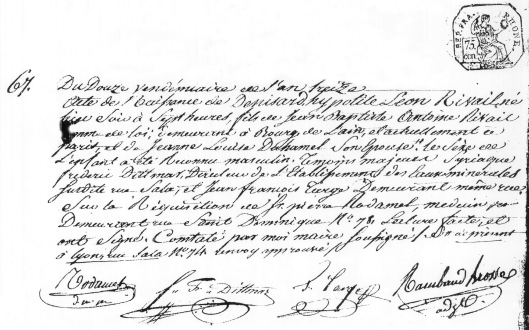 REP. FRA.
RHONE.
75
CEN.
67.
Du Douze vendémiaire de l'an treize
Acte de Naissance de Denisard hypolite Leon Rivail, né
hier Soir à Sept heures, fils de Jean Baptiste Antoine Rivail
homme de loi, demeurant à Bourg de Lain, et actuellement à
paris, et de Jeanne Louise Duhamel Son épouse. le Sexe de
L'enfant a été Reconnu masculin, témoins majeurs Syriaque
frederic Dittmar, Directeur de L'Etablissement des Eaux minérales
Susdite rue Sala, et Jean françois Targe Demeurant même rue
Sur la Réquisition de Sr. pierre Radamel, médecin
Demeurant rue Saint Dominique No. 78. Lecture faite, et
ont Signé. Constaté par moi maire Soussigné
à Lyon rue Sala No. 74 renvoy approuvé
Radamel
Dittmar
Targe
Rambaud
adjt.